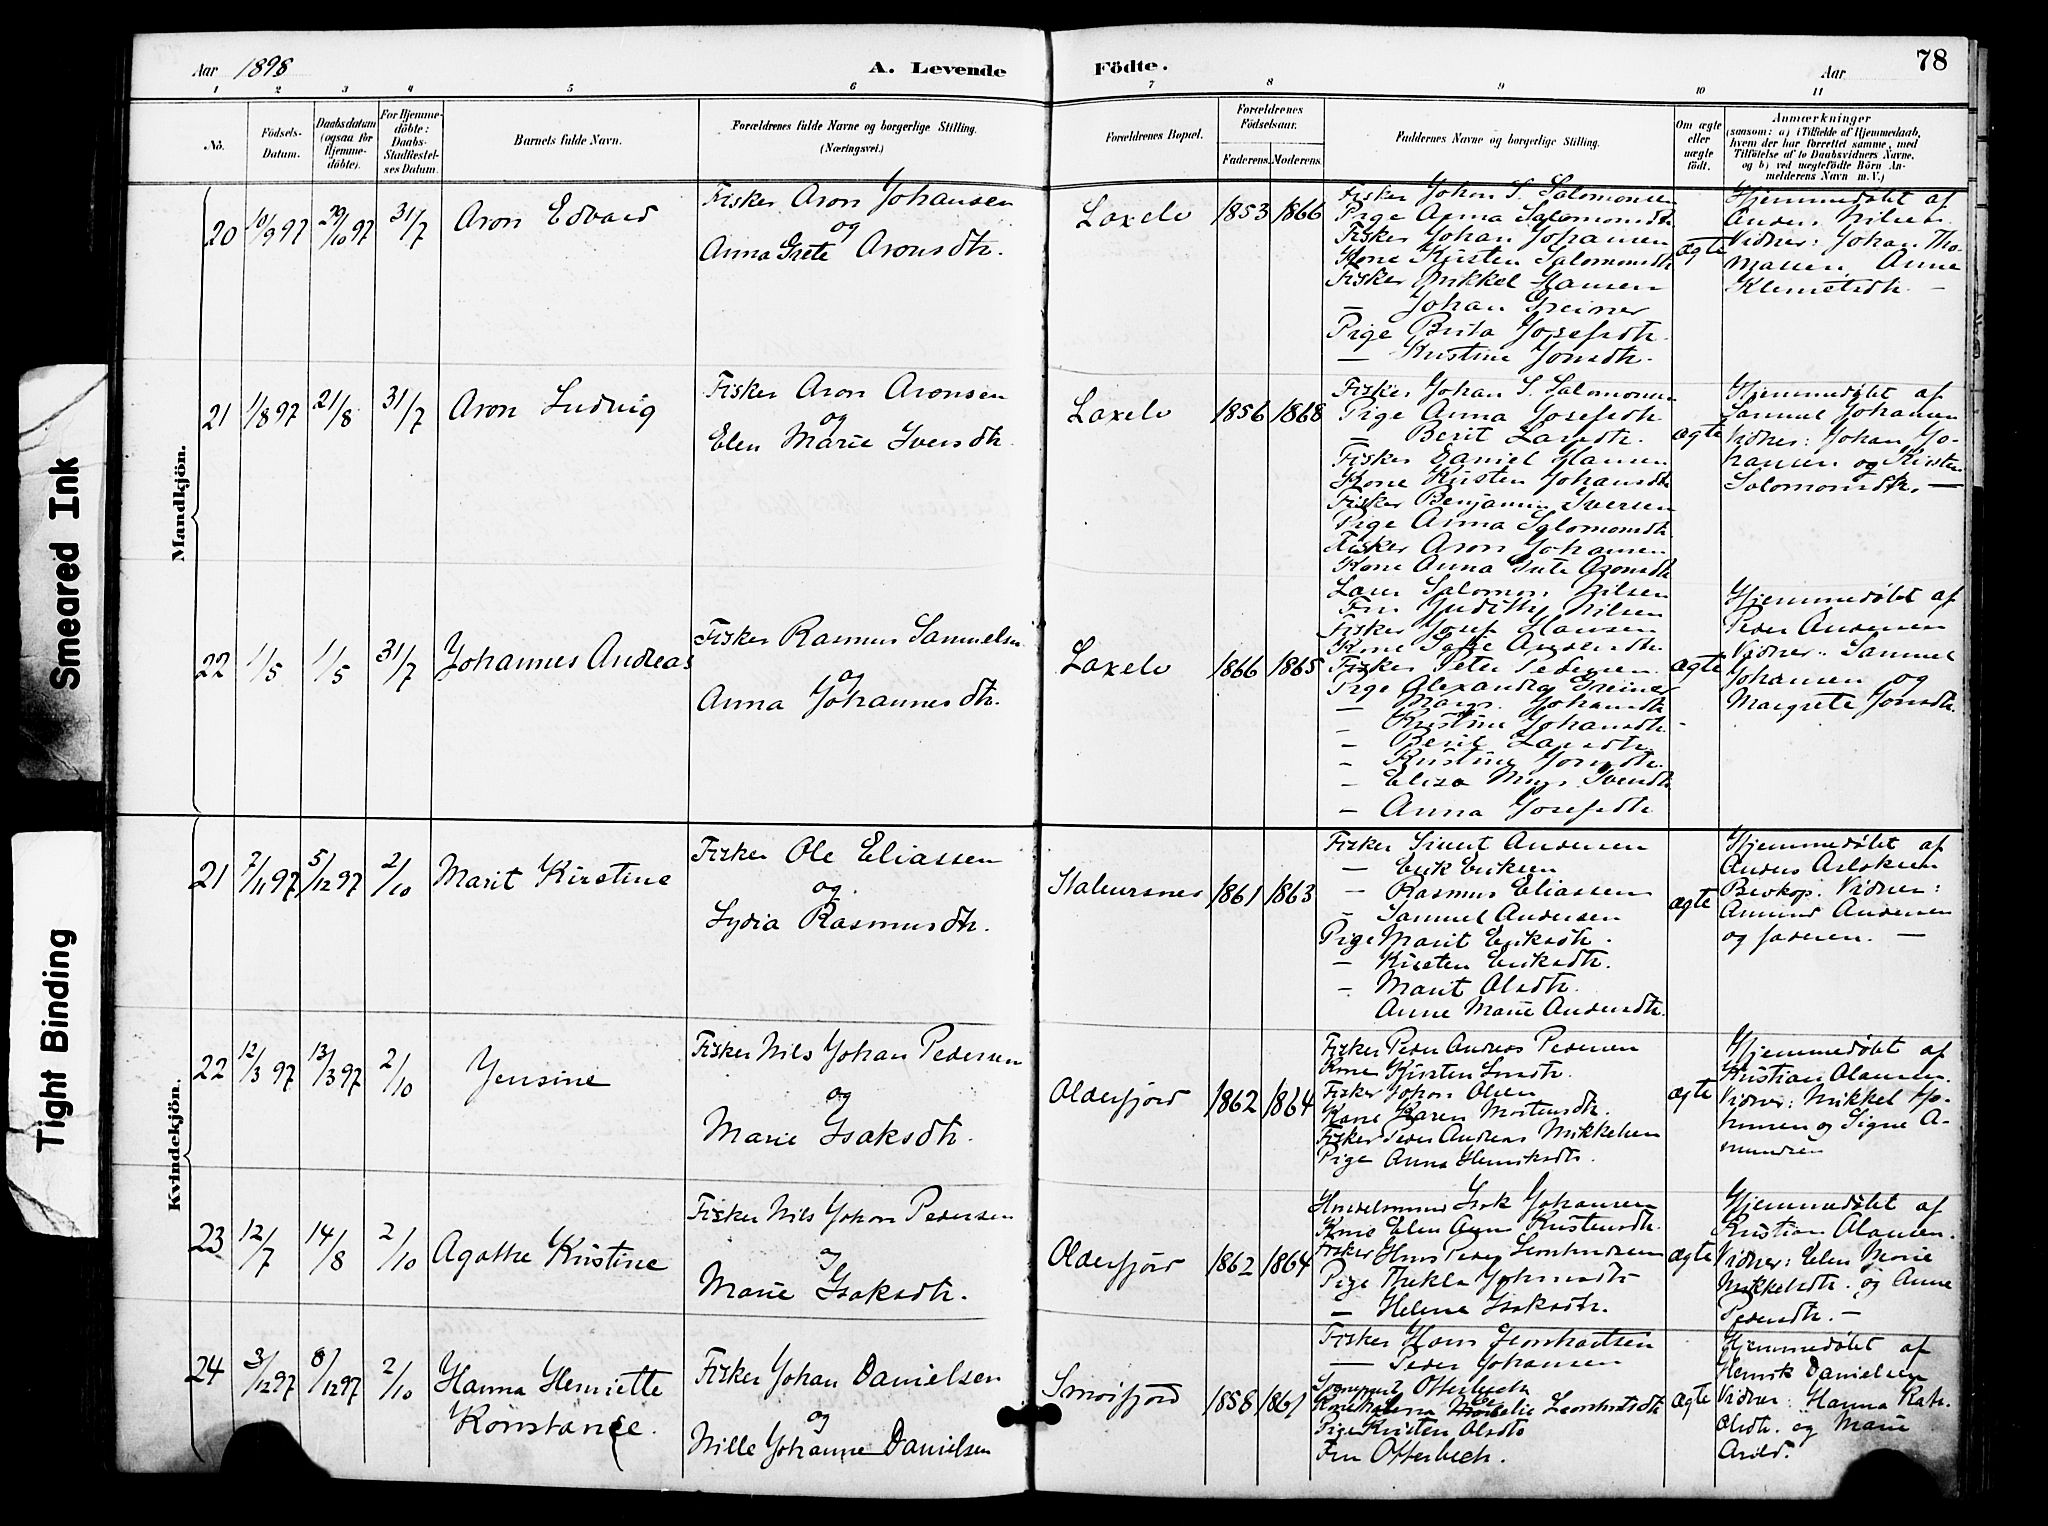 Aar 1898
A. Levende
Födte.
Aar
78
1 2 3 4 5 6 7 8 9 10 11
No.
Födsels-
Datum.
Daabsdatum
(ogsaa for
Hjemme-
döbte).
For Hjemme-
döbte:
Daabs-
Stadfæstel-
ses Datum.
Barnets fulde Navn.
Forældrenes fulde Navne og borgerlige Stilling.
(Næringsvei.)
Forældrenes Bopæl.
Forældrenes
Födselsaar.
Faderens. Moderens.
Faddernes Navne og borgerlige Stilling.
Om ægte
eller
uægte
födt.
Anmærkninger
(saasom: a) i Tilfælde af Hjemmedaab,
hvem der har forrettet samme, med
Tilföielse af to Daabsvidners Navne,
og b) ved uægtefödte Börn An-
melderens Navn m. V.)
Smeared Ink
Tight Binding
Mandkjön.
20
10/9 97
29/10 97
31/7
Aron Edvard
Fisker Aron Johansen
og
Anna Grete Aronsdtr.
Laxelv
1853
1866
Fisker Johan S. Salomonsen
Pige Anna Salomonsdtr
Fisker Johan Johansen
Kone Kirsten Salomonsdtr
Fisker Mikkel Hansen
— Johan Greiner
Pige Brita Josefsdtr.
— Kristine Jonsdtr.
ægte
Hjemmedøbt af
Anders Nilsen.
Vidner: Johan Tho-
massen, Anne
—
21
1/8 97
21/8
31/7
Aron Ludvig
Fisker Aron Aronsen
og
Elen Marie Iversdtr.
Laxelv
1856
1868
Fisker Johan S. Salomonsen
Pige Anna Josefsdtr.
— Berit Larsdtr.
Fisker Daniel Hansen
Kone Kirsten Johansdtr
Fisker Benjamin Iversen
Pige Anna Salomonsdtr.
Fisker Aron Johansen
Kone Anna Grete Aronsdtr
ægte
Hjemmedøbt af
Samuel Johansen
Vidner: Johan Jo-
hansen og Kirsten
Salomonsdtr. —
22
1/5
1/5
31/7
Johannes Andreas
Fisker Rasmus Samuelsen
og
Anna Johannesdtr.
Laxelv
1866
1865
Salomon Nilsen
Fru Judithy Nilsen
Fisker Josef Hansen
Kone Andersdtr.
Fisker Peter Pedersen
Pige Alexandra Greiner
— Johansdtr
— Kristine Johansdtr.
— Berit Larsdtr.
— Kristine Jonsdtr.
—
— Anna Josefsdtr
ægte
Hjemmedøbt af
Peder Andersen
Vidner: Samuel
Johansen og
Margrete Jonsdtr.
Kvindekjön.
21
7/11 97
5/12 97
2/10
Marit Kirstine
Fisker Ole Eliassen
og
Lydia Rasmusdtr.
Stabursnes
1861
1863
Fisker Andersen
— Erik Eriksen
— Rasmus Eliassen
— Samuel Andersen
Pige Marit Eriksdtr.
— Kirsten Eriksdtr.
— Marit Olsdtr.
Anne Marie Andersdtr.
ægte
Hjemmedøbt af
Anders
Vidner:
Amund Andersen
og faderen. —
22
12/3 97
13/3 97
2/10
Jensine
Fisker Nils Johan Pedersen
og
Marie Isaksdtr.
Olderfjord
1862
1864
Fisker Peder Andreas Pedersen
Kone Kirsten
Fisker Johan Olsen
Kone Karen Mortensdtr.
Fisker Peder Andreas Mikkelsen
Pige Anna Henriksdtr.
ægte
Hjemmedøbt af
Kristian Olausen.
Vidner: Mikkel Jo-
hansen og Signe A-
mundsen
23
12/7
14/8
2/10
Agathe Kirstine
Fisker Nils Johan Pedersen
og
Marie Isaksdtr.
Olderfjord
1862
1864
Handelsmand Isak Johansen
Kone Elen Anne Kristensdtr.
Fisker Hans Peder Leonhardsen
Pige Thekla Johansdtr
— Helene Isaksdtr.
ægte
Hjemmedøbt af
Kristian Olausen.
Vidner: Elen Marie
Mikkelsdtr. og Anne
Pedersdtr. —
24
3/12 97
8/12 97
2/10
Hanna Henriette
Konstance.
Fisker Johan Danielsen
og
Nille Johanne Danielsen
Smørfjord
1858
1861
Fisker Hans Leonhardsen
— Peder Johansen
Otterbech
Kone Leonhardsdtr
Pige Kirsten Olsdtr
Fru Otterbech.
ægte
Hjemmedøbt af
Henrik Danielsen
Vidner: Hanna Katr.
Olsdtr. og Marie
Arild.